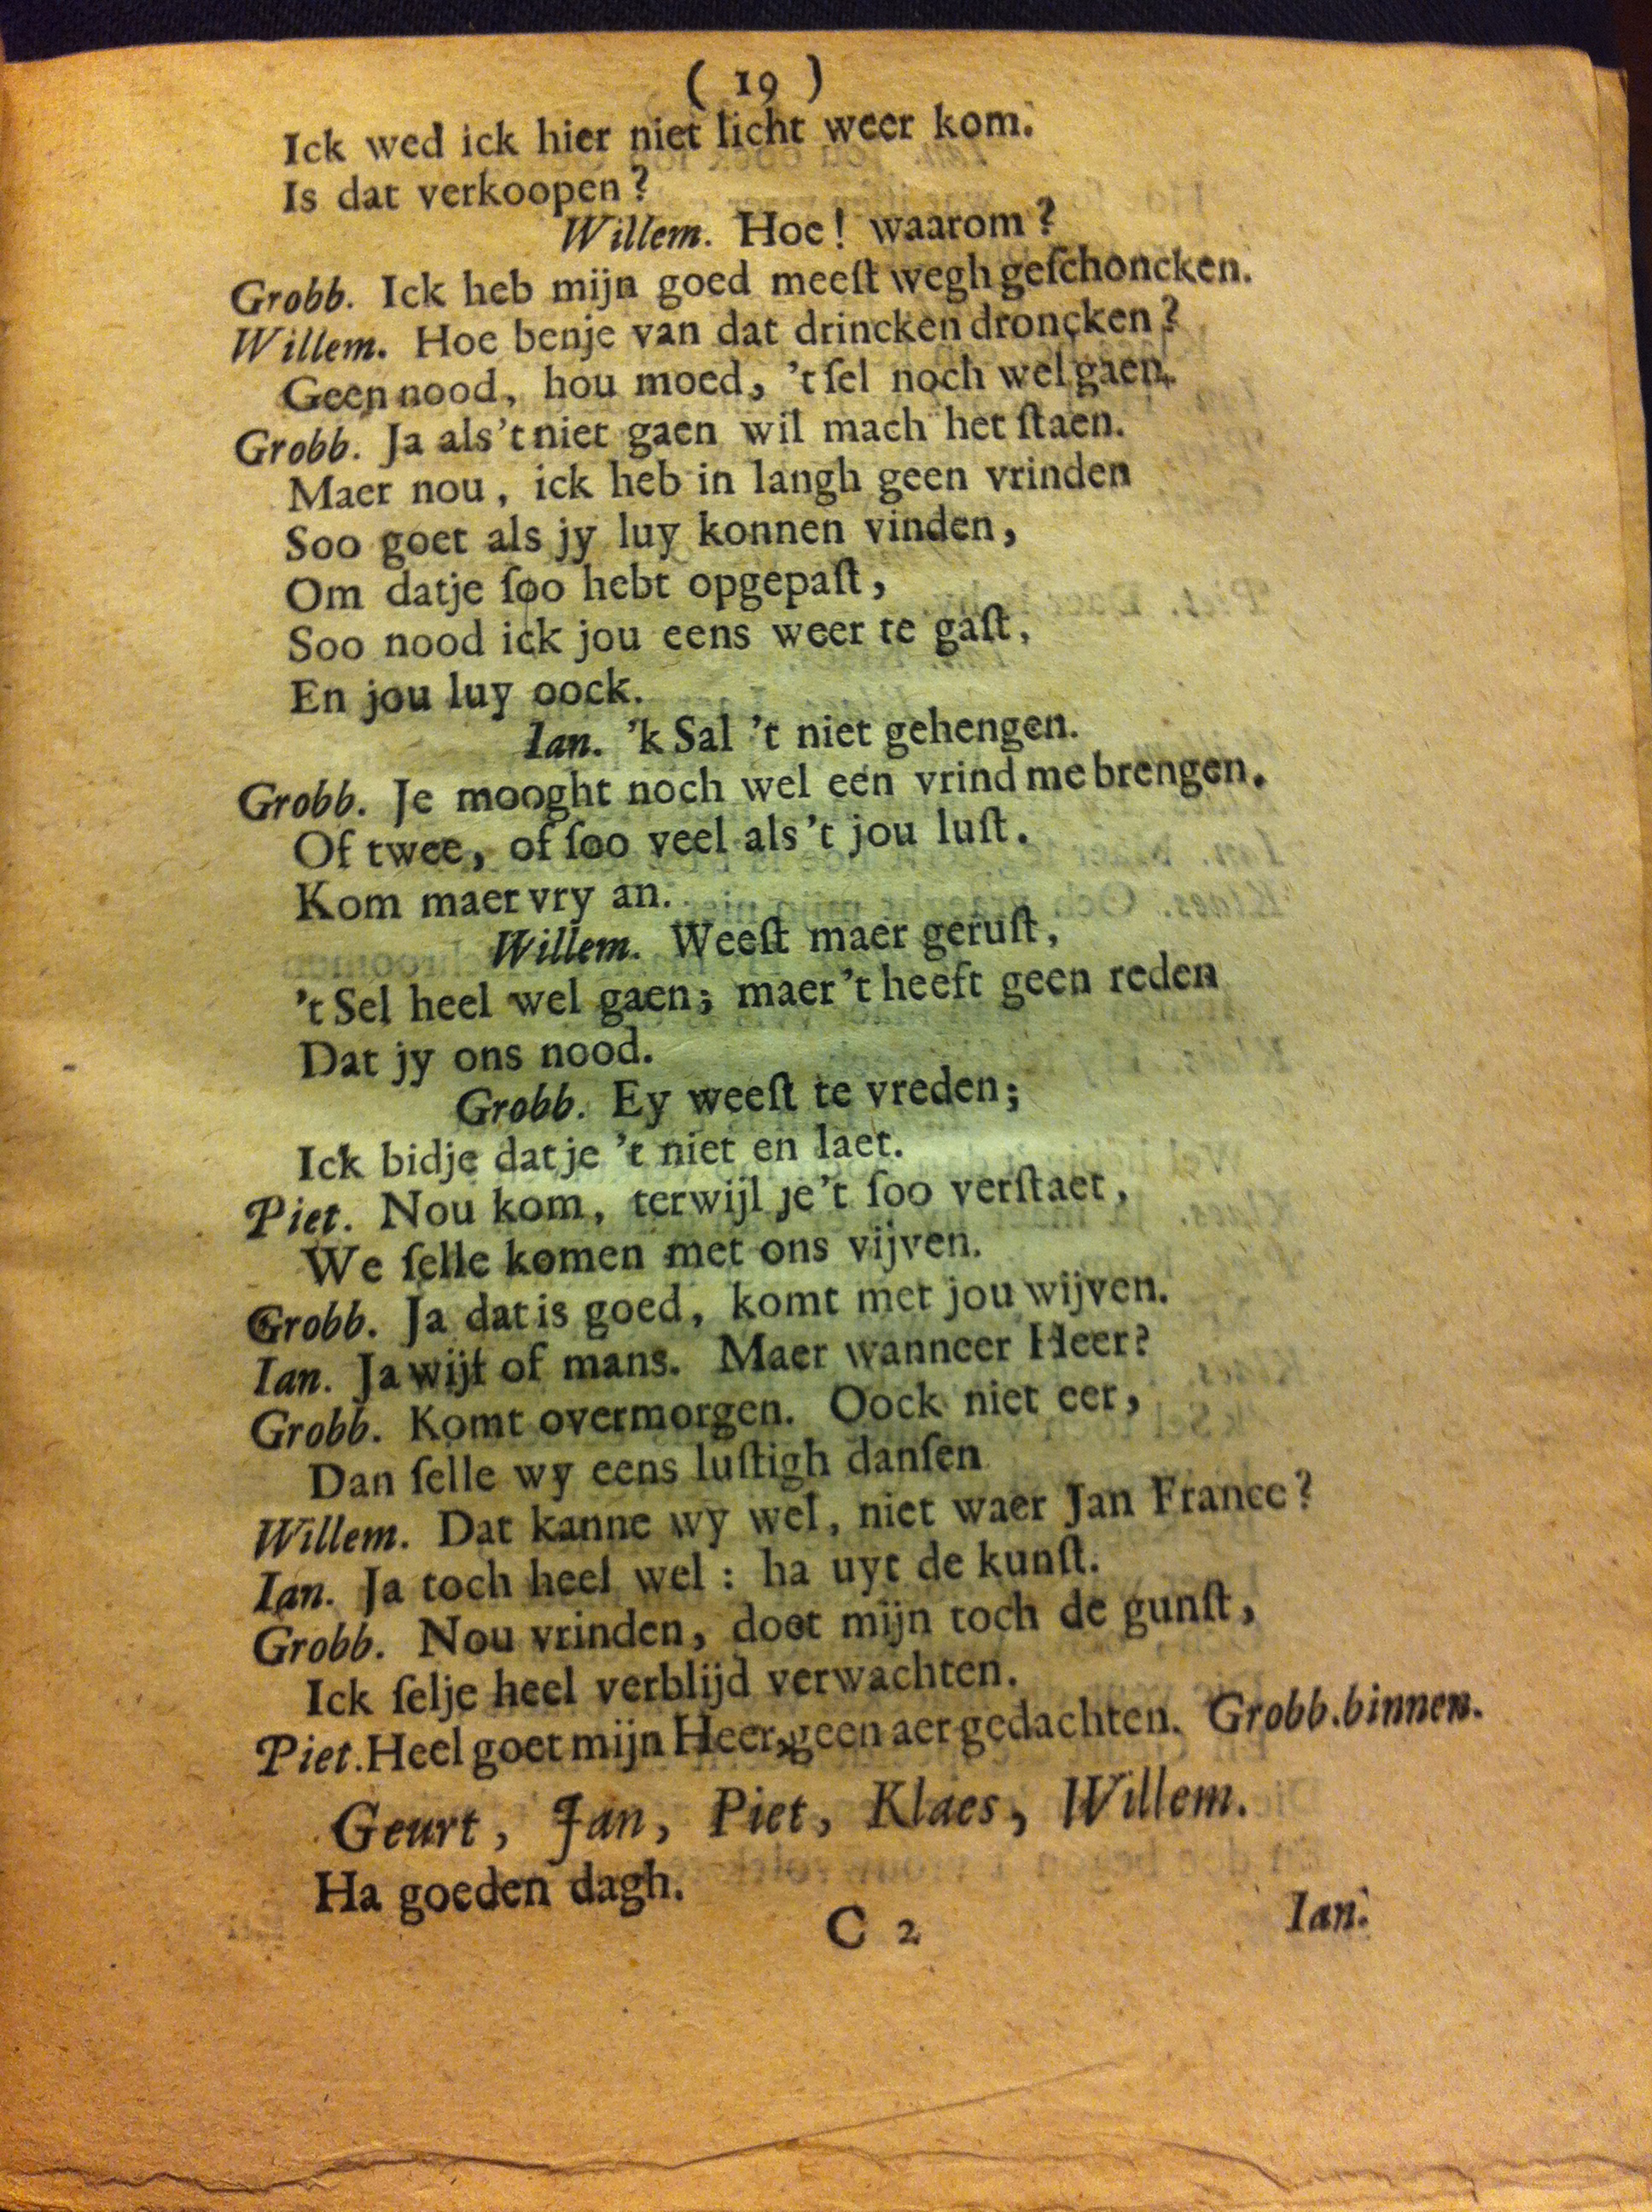 ( 19 )
Ick wed ick hier niet licht weer kom.
Is dat verkoopen?
Willem. Hoe! waarom?
Grobb. Ick heb mijn goed meeſt wegh geſchoncken.
Willem. Hoe benje van dat drincken droncken?
Geen nood, hou moed, 't ſel noch wel gaen.
Grobb. Ja als 't niet gaen wil mach het ſtaen.
Maer nou, ick heb in langh geen vrinden
Soo goet als jy luy konnen vinden,
Om datje ſoo hebt opgepaſt,
Soo nood ick jou eens weer te gaſt,
En jou luy oock.
Ian. 'k Sal 't niet gehengen.
Grobb. Je mooght noch wel een vrind me brengen.
Of twee, of ſoo veel als 't jou luſt.
Kom maer vry an.
Willem. Weeſt maer geruſt,
't Sel heel wel gaen; maer 't heeft geen reden
Dat jy ons nood.
Grobb. Ey weeſt te vreden;
Ick bidje dat je 't niet en laet.
Piet. Nou kom, terwijl je 't ſoo verſtaet,
We ſelle komen met ons vijven.
Grobb. Ja dat is goed, komt met jou wijven.
Ian. Ja wijf of mans. Maer wanneer Heer?
Grobb. Komt overmorgen. Oock niet eer,
Dan ſelle wy eens luſtigh danſen
Willem. Dat kanne wy wel, niet waer Jan France?
Ian. Ja toch heel wel: ha uyt de kunſt.
Grobb. Nou vrinden, doet mijn toch de gunſt,
Ick ſelje heel verblijd verwachten.
Piet. Heel goet mijn Heer, geen aer gedachten. Grobb. binnen.
Geurt, Jan, Piet, Klaes, Willem.
Ha goeden dagh.
C 2 Ian.